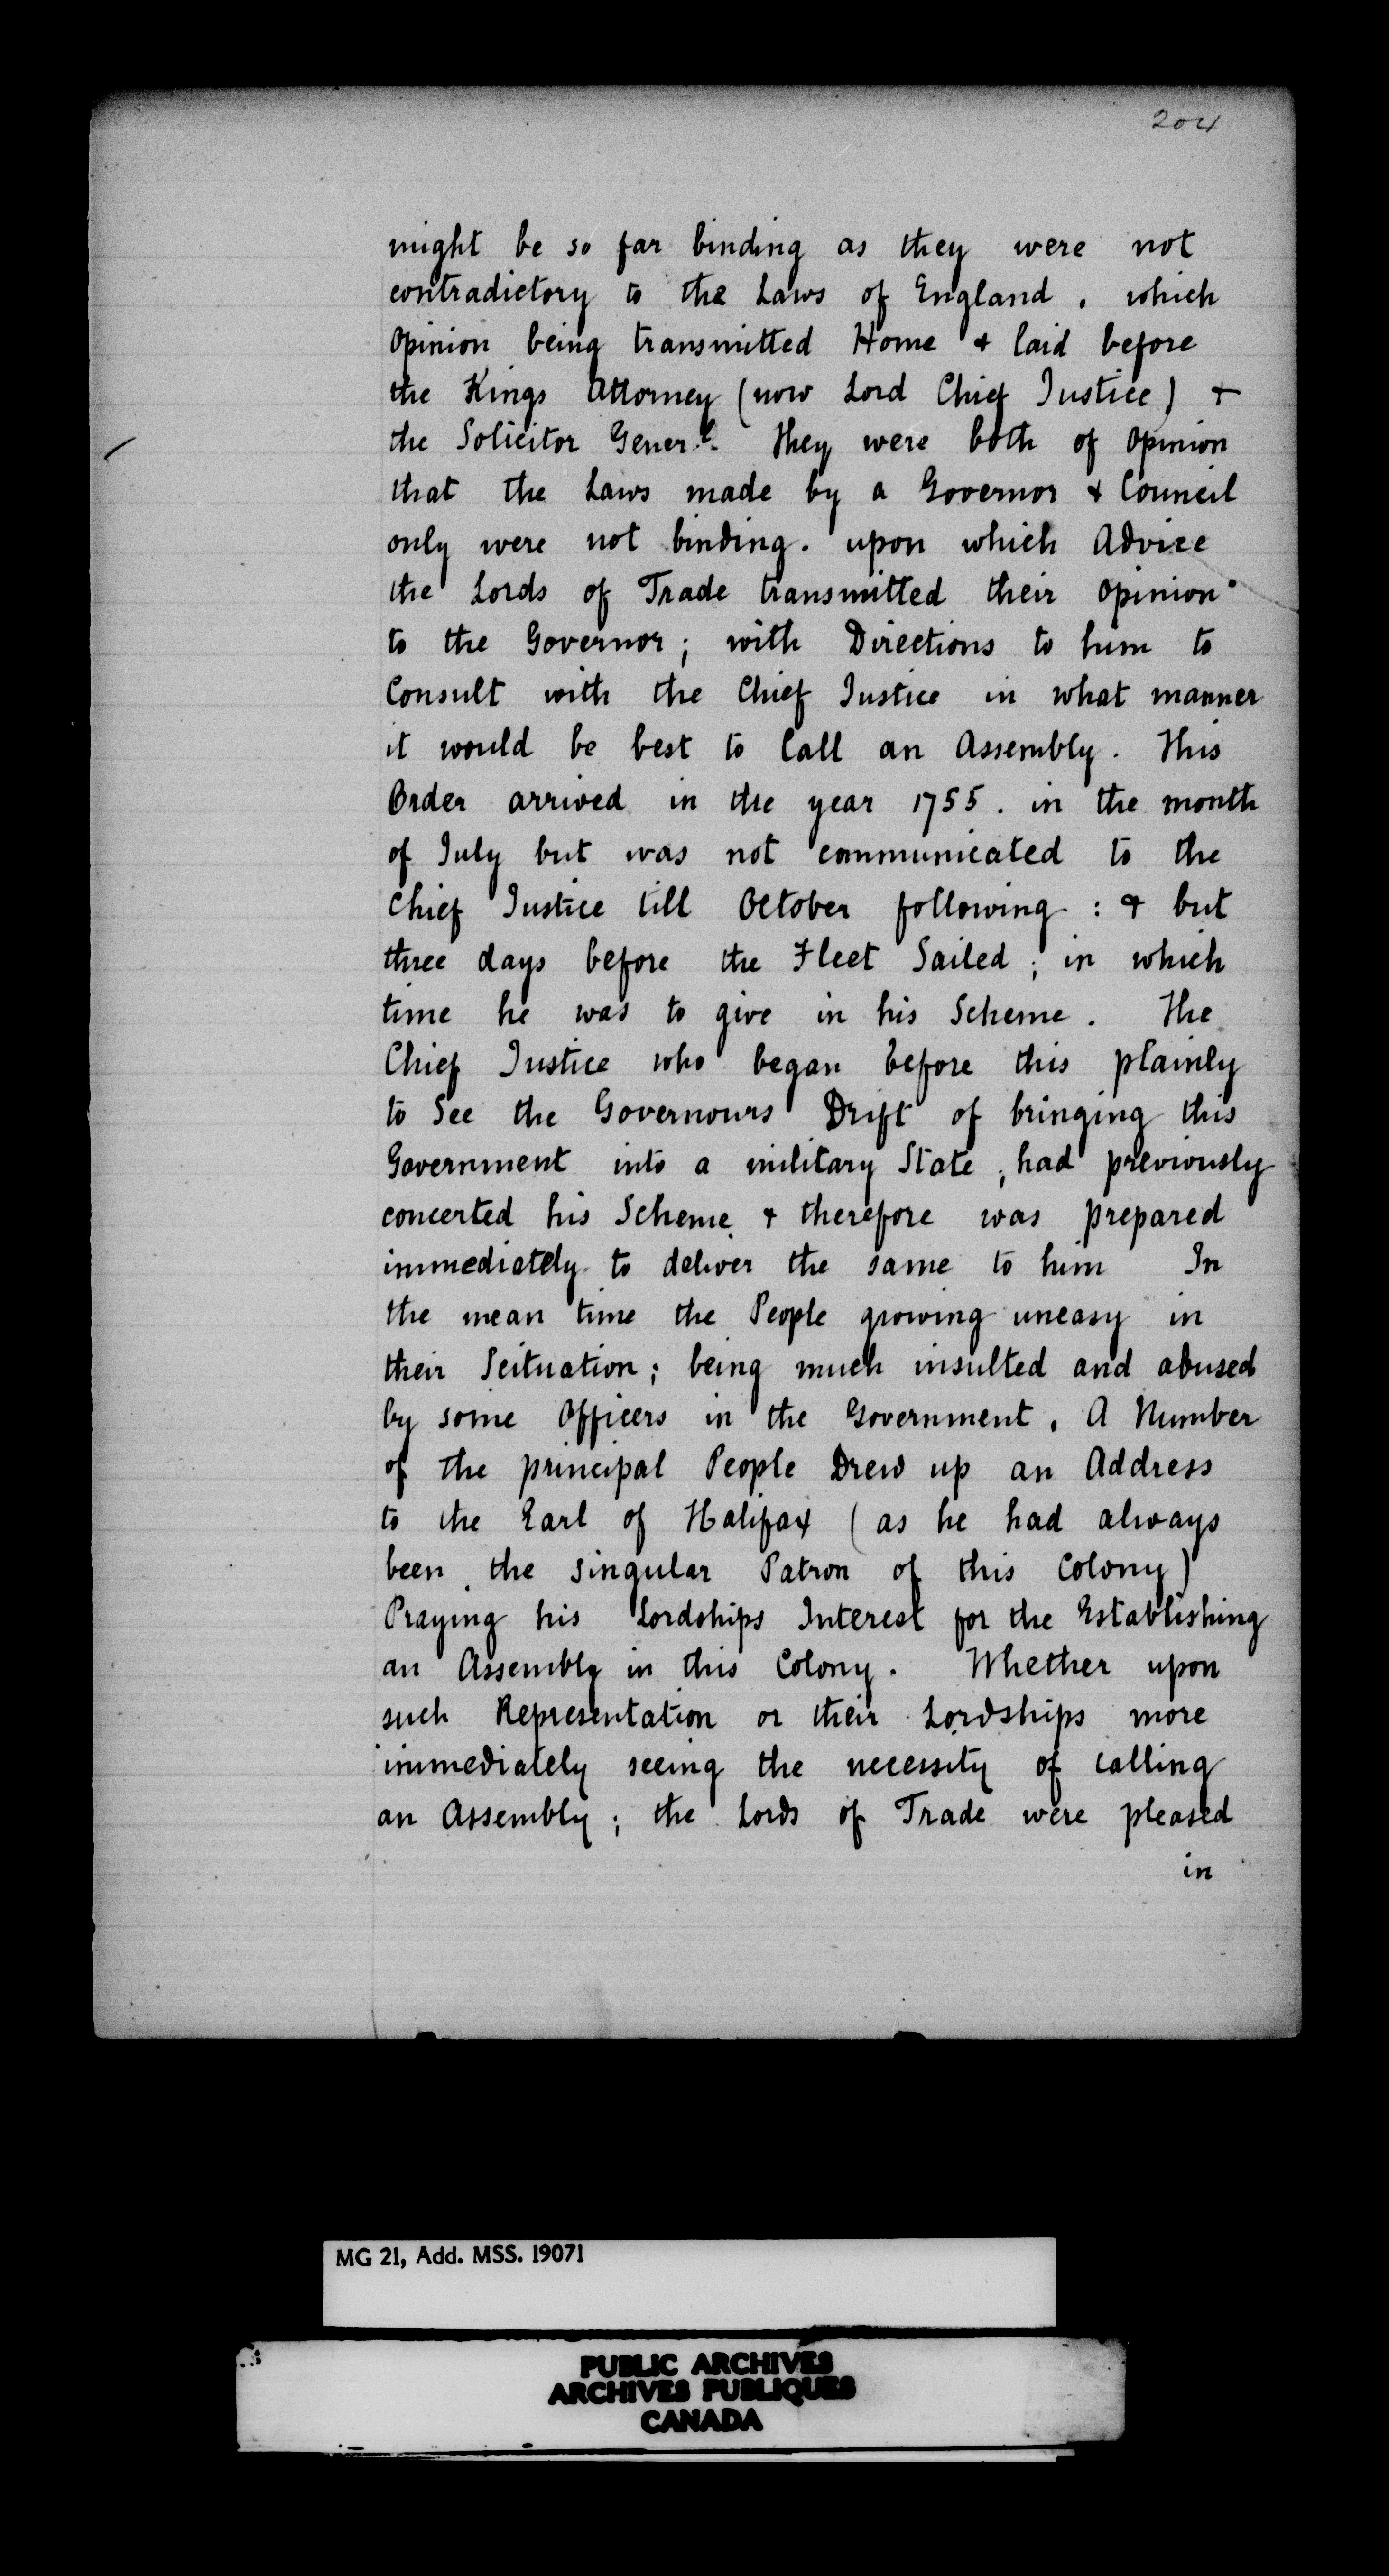 204
might be so far binding as they were not
contradictory to the Laws of England. which
Opinion being transmitted Home & laid before
the Kings Attorney (now Lord Chief Justice) &
the Solicitor Generl. They were both of Opinion
that the Laws made by a Governor & Council
only were not binding. upon which Advice
the Lords of Trade transmitted their Opinion
to the Governor; with Directions to him to
Consult with the Chief Justice in what manner
it would be best to Call an Assembly. This
Order arrived in the year 1755. in the month
of July but was not communicated to the
Chief Justice till October following: & but
three days before the Fleet Sailed; in which
time he was to give in his Scheme. The
Chief Justice who began before this plainly
to See the Governours Drift of bringing this
Government into a military State, had previously
concerted his Scheme & therefore was prepared
immediately to deliver the same to him In
the mean time the People growing uneasy in
their Scituation; being much insulted and abused
by some Officers in the Government. A Number
of the principal People Drew up an Address
to the Earl of Halifax (as he had always
been the singular Patron of this Colony)
Praying his Lordships Interest for the Establishing
an Assembly in this Colony. Whether upon
such Representation or their Lordships more
immediately seeing the necessity of calling
an Assembly; the Lords of Trade were pleased
in
MG 21, Add. MSS. 19071
PUBLIC ARCHIVES
ARCHIVES PUBLIQUES
CANADA